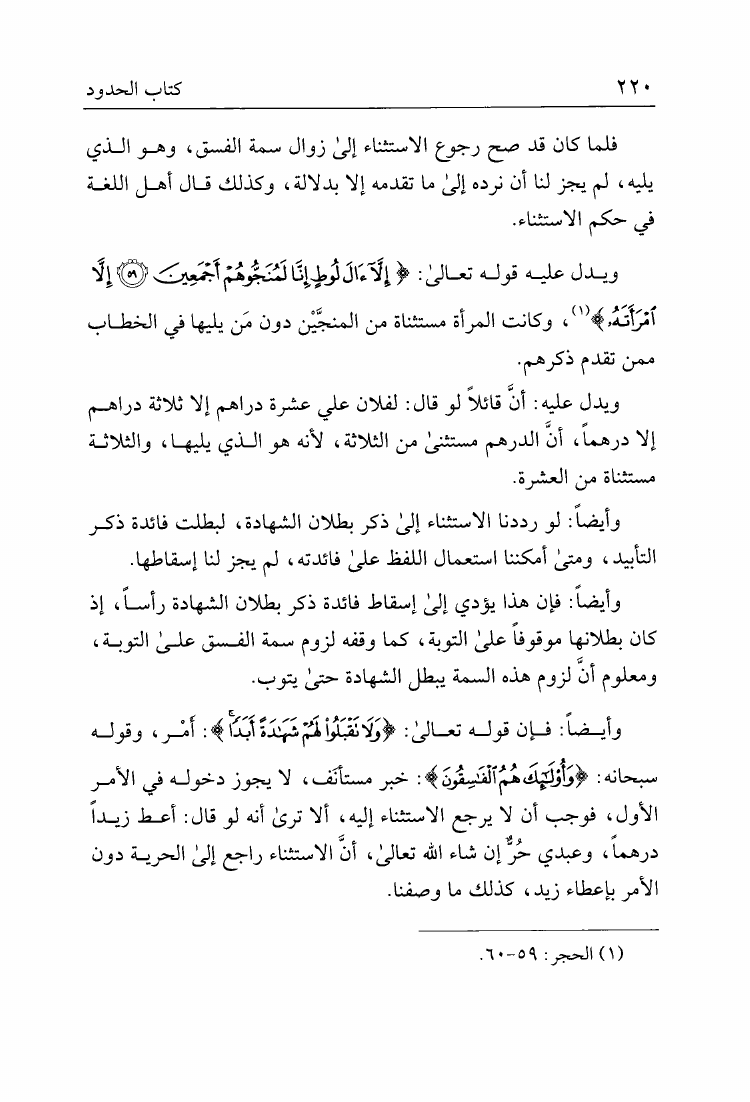 ٢٢٠ كتاب الحدود
فلما كان قد صح رجوع الاستثناء إلىٰ زوال سمة الفسق، وهـو الـذي
يليه، لم يجز لنا أن نرده إلىٰ ما تقدمه إلا بدلالة، وكذلك قـال أهـل اللغـة
في حكم الاستثناء.
ويـدل عليـه قولـه تعـالىٰ: ﴿إِلَّآ ءَالَ لُوطٍ إِنَّا لَمُنَجُّوهُمْ أَجْمَعِينَ ۝٥٩ إِلَّا
ٱمْرَأَتَهُۥ﴾(١)، وكانت المرأة مستثناة من المنجَّيْن دون مَن يليها في الخطـاب
ممن تقدم ذكرهم.
ويدل عليه: أنَّ قائلاً لو قال: لفلان علي عشرة دراهم إلا ثلاثة دراهـم
إلا درهمـاً، أنَّ الدرهم مستثنىٰ من الثلاثة، لأنه هو الـذي يليهـا، والثلاثـة
مستثناة من العشرة.
وأيضاً: لو رددنا الاستثناء إلىٰ ذكر بطلان الشهادة، لبطلت فائدة ذكـر
التأبيد، ومتىٰ أمكننا استعمال اللفظ علىٰ فائدته، لم يجز لنا إسقاطها.
وأيضاً: فإن هذا يؤدي إلىٰ إسقاط فائدة ذكر بطلان الشهادة رأسـاً، إذ
كان بطلانها موقوفاً علىٰ التوبة، كما وقفه لزوم سمة الفـسق علـىٰ التوبـة،
ومعلوم أنَّ لزوم هذه السمة يبطل الشهادة حتىٰ يتوب.
وأيـضاً: فـإن قولـه تعـالىٰ: ﴿وَلَا نَقْبَلُواْ لَهُمْ شَهَٰدَةً أَبَدًا ۚ﴾: أمْـر، وقولـه
سبحانه: ﴿وَأُوْلَٰٓئِكَ هُمُ ٱلْفَٰسِقُونَ﴾: خبر مستأنَف، لا يجوز دخولـه في الأمـر
الأول، فوجب أن لا يرجع الاستثناء إليه، ألا ترىٰ أنه لو قال: أعـط زيـداً
درهماً، وعبدي حُرٌّ إن شاء الله تعالىٰ، أنَّ الاستثناء راجع إلىٰ الحريـة دون
الأمر بإعطاء زيد، كذلك ما وصفنا.
(١) الحجر: ٥٩-٦٠.